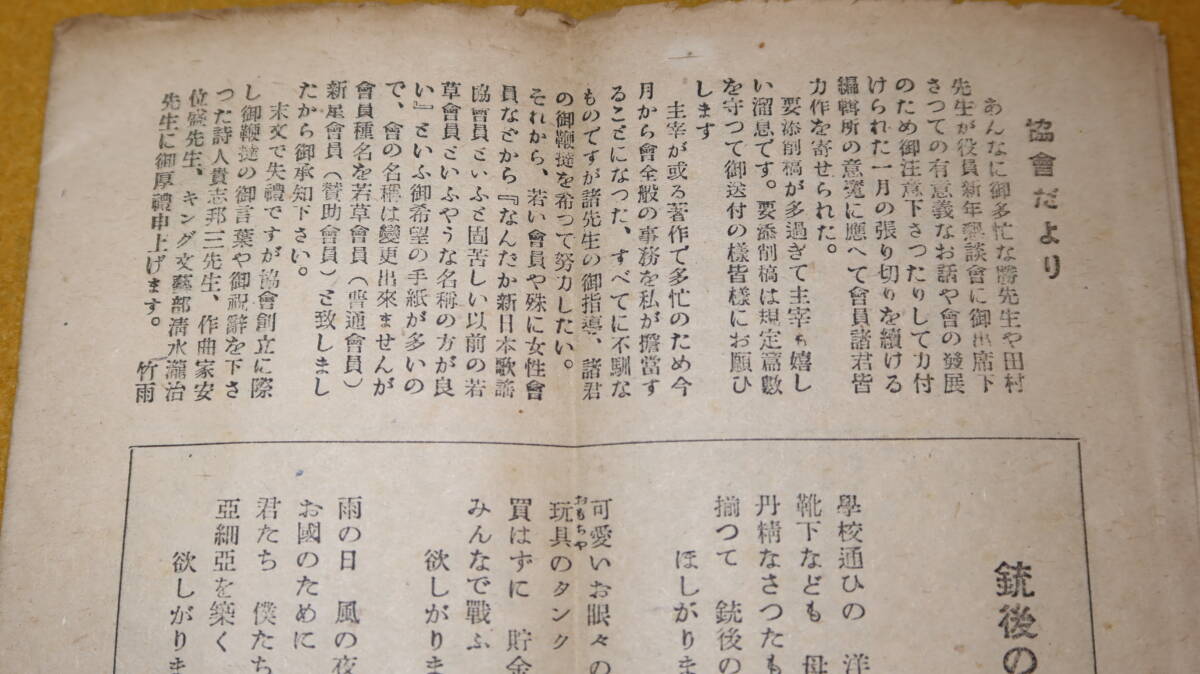 協會だより
あんなに御多忙な勝先生や田村
先生が役員新年懇談會に御出席下
さつての有意義なお話や會の發展
のため御注意下さつたりして力付
けられた一月の張り切りを續ける
編輯所の意氣に應へて會員諸君皆
力作を寄せられた。
要添削稿が多過ぎて主宰も嬉し
い溜息です。要添削稿は規定篇數
を守つて御送付の樣皆樣にお願ひ
します
主宰が或る著作で多忙のため今
月から會全般の事務を私が擔當す
ることになつた、すべてに不馴な
ものですが諸先生の御指導、諸君
の御鞭撻を希つて努力したい。
それから、若い會員や殊に女性會
員などから『なんだか新日本歌謠
協會員といふと固苦しい以前の若
草會員といふやうな名稱の方が良
い』といふ御希望の手紙が多いの
で、會の名稱は變更出來ませんが
會員種名を若草會員（普通會員）
新星會員（贊助會員）と致しまし
たから御承知下さい。
末文で失禮ですが協會創立に際
し御鞭撻の御言葉や御祝辭を下さ
つた詩人貴志邦三先生、作曲家安
位盛先生、キング文藝部清水瀧治
先生に御厚禮申上げます。
竹雨
銃後の
學校通ひの　洋
靴下なども　母
丹精なさつたも
揃つて　銃後の
ほしがりま
可愛いお眼々の
玩具のタンク
おもちや
買はずに　貯金
みんなで戰ふ
欲しがりま
雨の日　風の夜
お國のために
君たち　僕たち
亞細亞を築く
欲しがりま